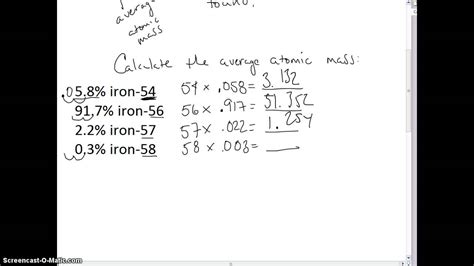 found.
average
atomic
mass
Calculate the average atomic mass:
.05.8% iron-54 54 × .058= 3.132
91.7% iron-56 56 × .917= 51.352
2.2% iron-57 57 × .022= 1.254
0.3% iron-58 58 × .003= ___
Screencast-O-Matic.com